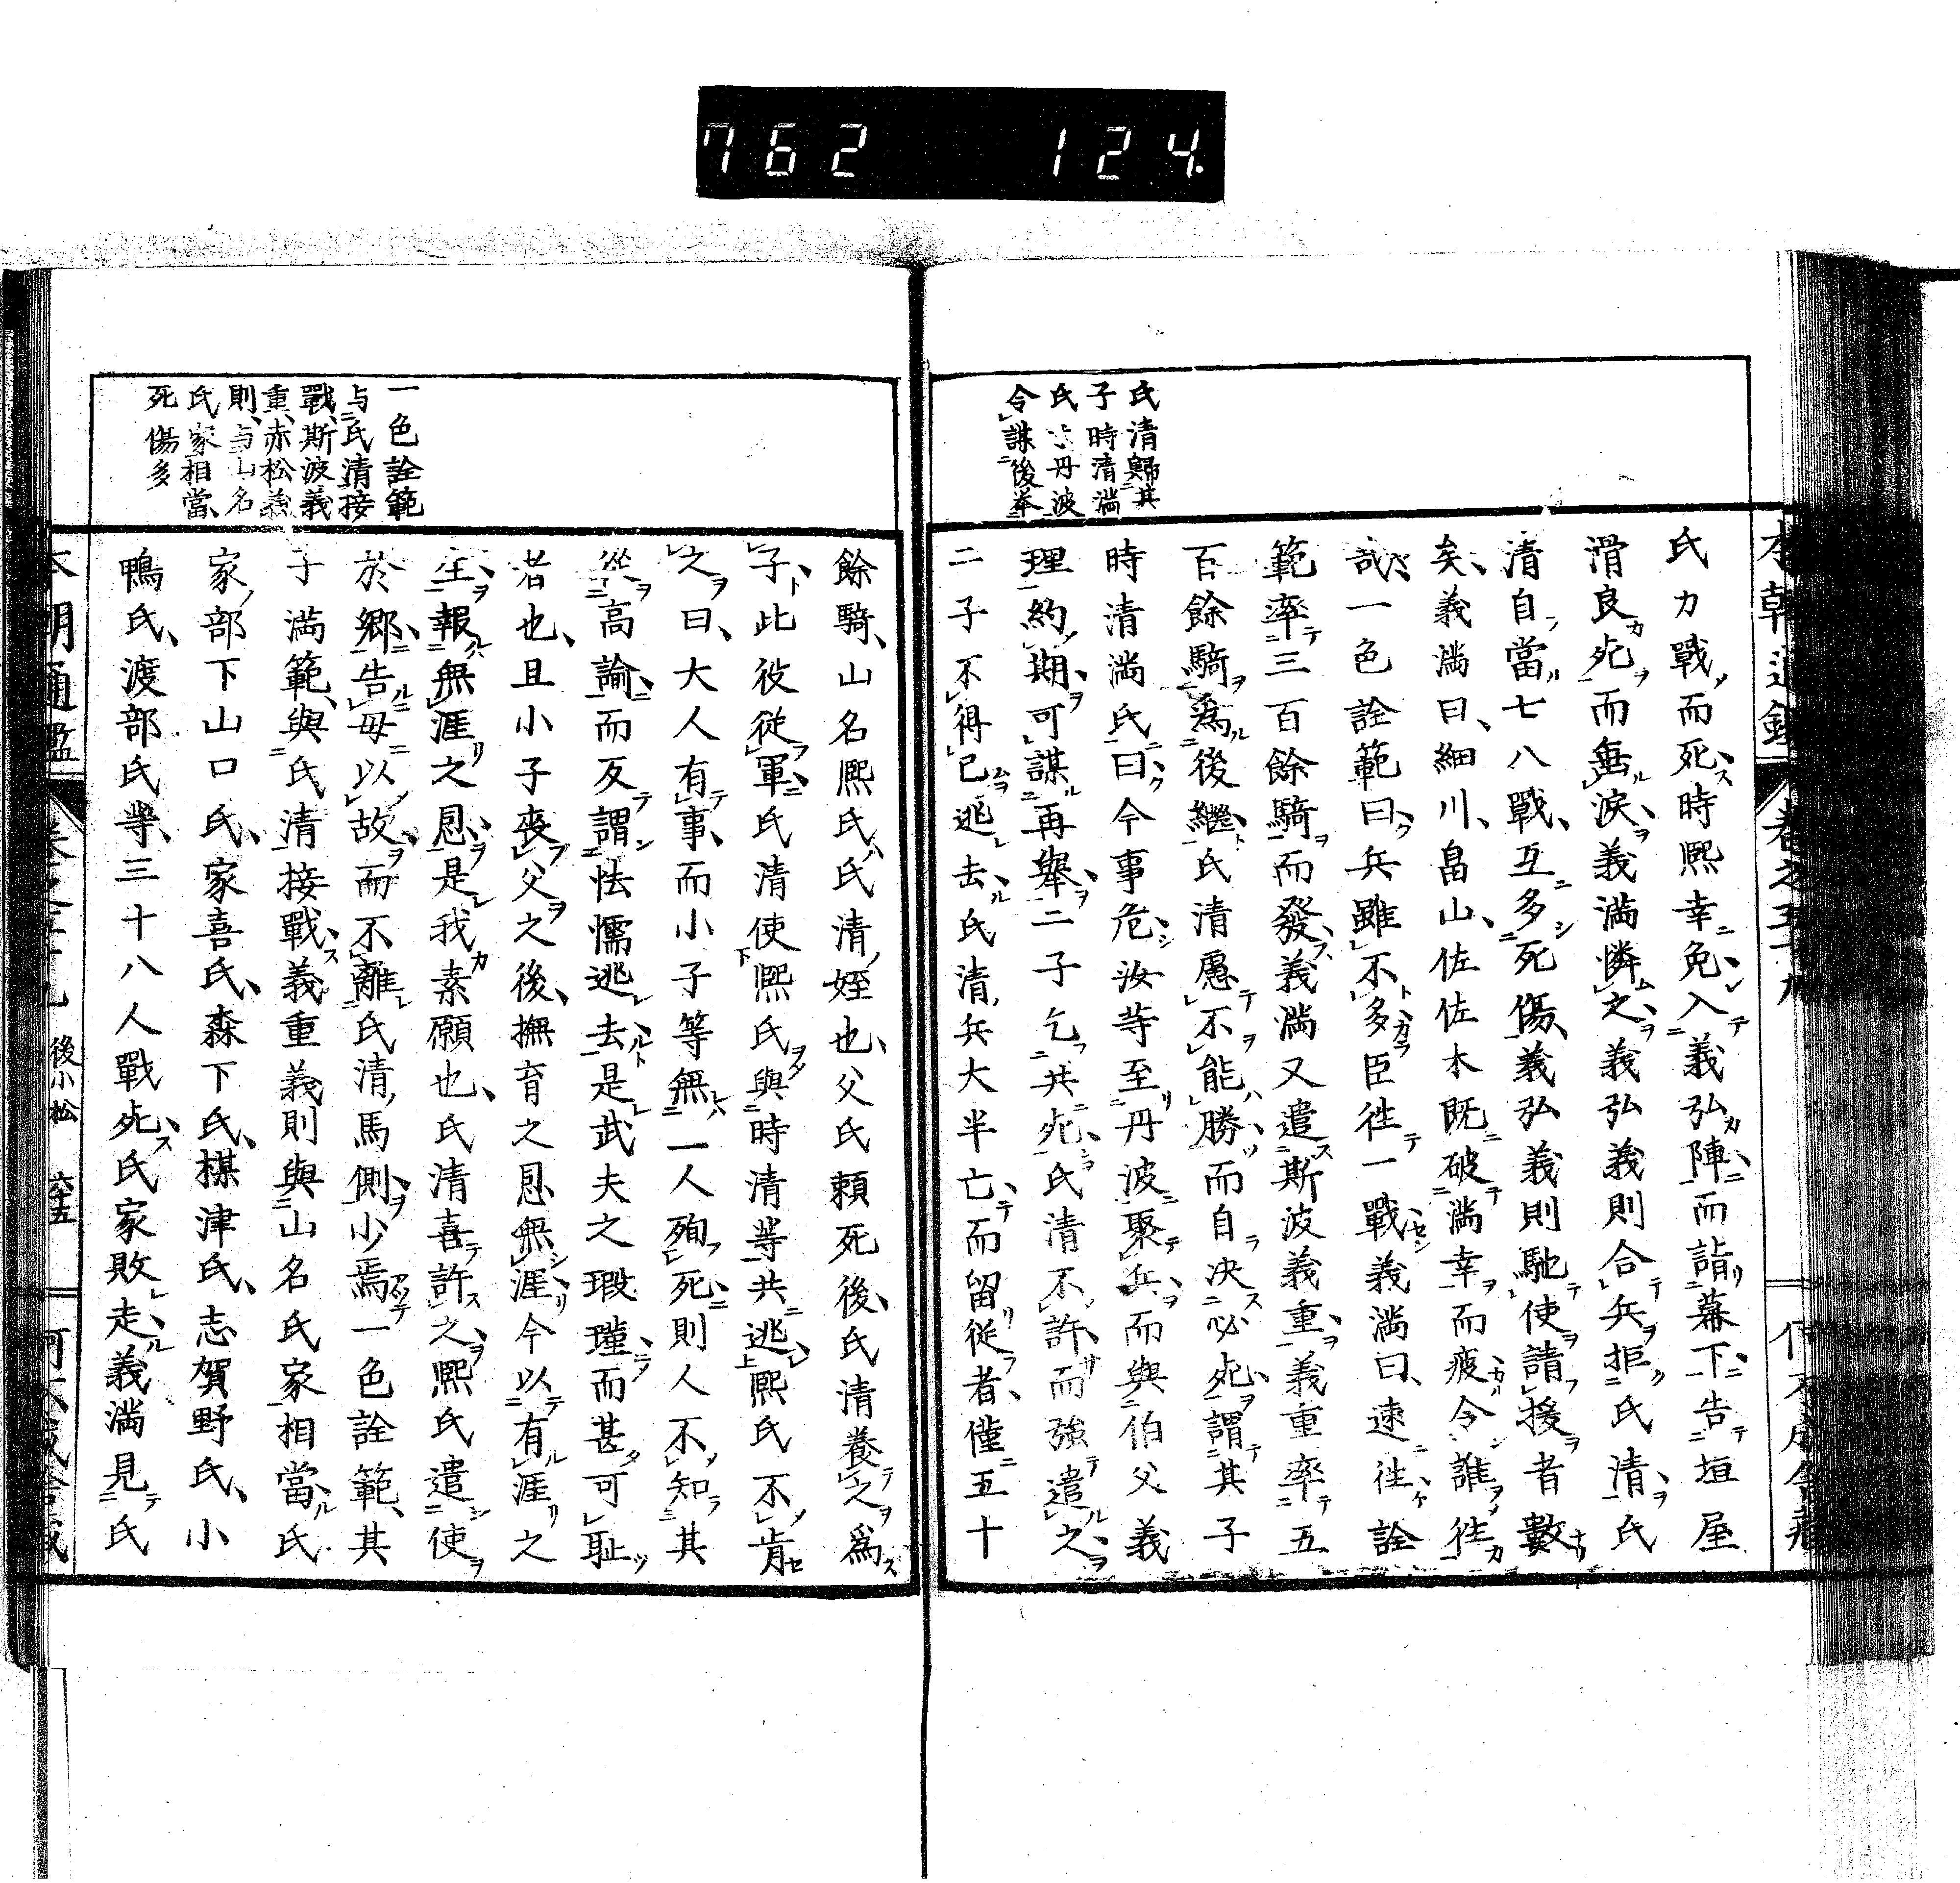 762 124
氏清歸其
子時清満
氏於丹波
令謀後挙
氏力戰而死時熈幸免入義弘陣而詣幕下告垣屋
滑良死而垂淚義満憐之義弘義則合兵拒氏清氏
清自當七八戰互多死傷義弘義則馳使請援者數
矣義満曰細川畠山佐佐木既破満幸而疲令誰往
哉一色詮範曰兵雖不多臣往一戰義満曰速往詮
範率三百餘騎而發義満又遣斯波義重義重率五
百餘騎爲後繼氏清慮不能勝而自决必死謂其子
時清満氏曰今事危汝等至丹波聚兵而與伯父義
理約期可謀再舉二子乞共死氏清不許而強遣之
二子不得已逃去氏清兵大半亡而留從者僅五十
一色詮範
与氏清接
戰斯波義
重赤松義
則与山名
氏家相當
死傷多
餘騎山名熈氏氏清姪也父氏頼死後氏清養之爲
子此役從軍氏清使熈氏與時清等共逃熈氏不肯
之曰大人有事而小子等無一人殉死則人不知其
從高諭而反謂怯懦逃去是武夫之瑕瑾而甚可耻
者也且小子喪父之後撫育之恩無涯今以有涯之
生報無涯之恩是我素願也氏清喜許之熈氏遣使
於郷告毋以故而不離氏清馬側少焉一色詮範其
子満範與氏清接戰義重義則與山名氏家相當氏
家部下山口氏家喜氏森下氏楳津氏志賀野氏小
鴨氏渡部氏等三十八人戰死氏家敗走義満見氏
後小松 六十五